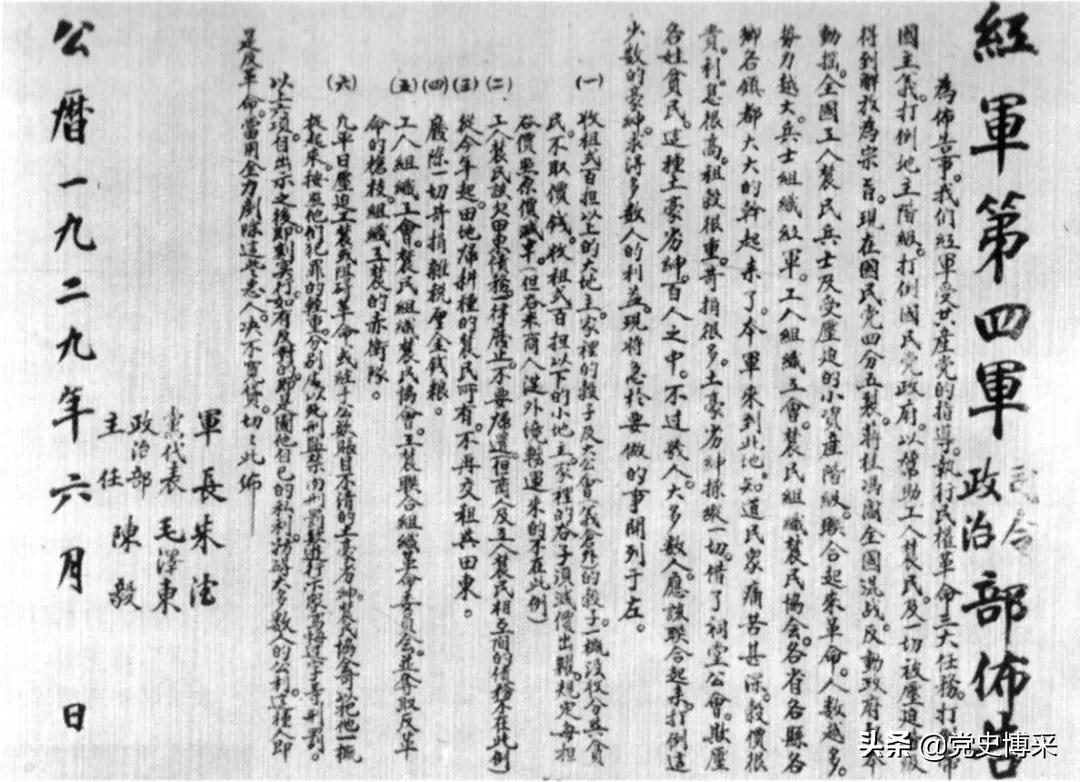 紅軍第四軍司令政治部佈告
為佈告事。我們紅軍受共產党的指導。執行民權革命三大任務。打倒帝
國主義。打倒地主階級。打倒國民党政府。以幫助工人農民。及一切被壓迫階級
得到解放為宗旨。現在國民党四分五裂。蔣桂馮閻全國混战。反動政府大
動搖。全國工人農民兵士及受壓迫的小資産階級。聯合起來革命。人数越多。
势力越大。兵士組織紅軍。工人組織工會。農民組織農民協会。各省各縣各
鄉各鎮都大大的幹起来了。本軍來到此地。知道民家痛苦甚深。穀價很
貴。利息很高。租穀很重。苛捐很多。土豪劣紳操縱一切。借了祠堂公會。欺壓
各姓貧民。這種土豪劣紳。百人之中。不过幾人。大多数人應該联合起来。打倒這
少数的豪紳。求得多数人的利益。現將急於要做的事開列于左。
(一) 收租弍百担以上的大地主。家裡的穀子及大公會(義倉外)的穀子。一概没收分與貧
民。不取價钱。收租弍百担以下的小地主家裡的谷子須减價出糶。規定每担
谷價照原價减半。(但谷米商人從外境轉運来的不在此例)
(二) 工人農民該欠田東債務。一律廢止。不要歸還。(但商人及工人農民相互間的债務不在此例)
(三) 從今年起。田地歸耕種的農民所有。不再交租與田東。
(四) 廢除一切苛捐雜税厘金钱粮。
(五) 工人組織工會。農民組織農民協會。工農联合組織革命委員会。並奪取反革
命的槍枝。組織工農的赤衛隊。
(六) 凡平日壓迫工農或阻碍革命或經手公款賬目不清的土豪劣紳。農民協會可把他一概
捉起来。按照他們犯罪的輕重。分别處以死刑監禁肉刑罰款遊行示家寫悔过字等刑罰。
以上六項。自出示之後。即刻实行。如有反對的。即是圖他自己的私利。妨碍大多数人的公利。這種人即
是反革命。當用全力剷除這等惡人。决不寬貸。切切此佈
軍長 朱德
党代表 毛澤東
政治部主任 陳毅
公曆一九二九年六月 日
头条 @党史博采